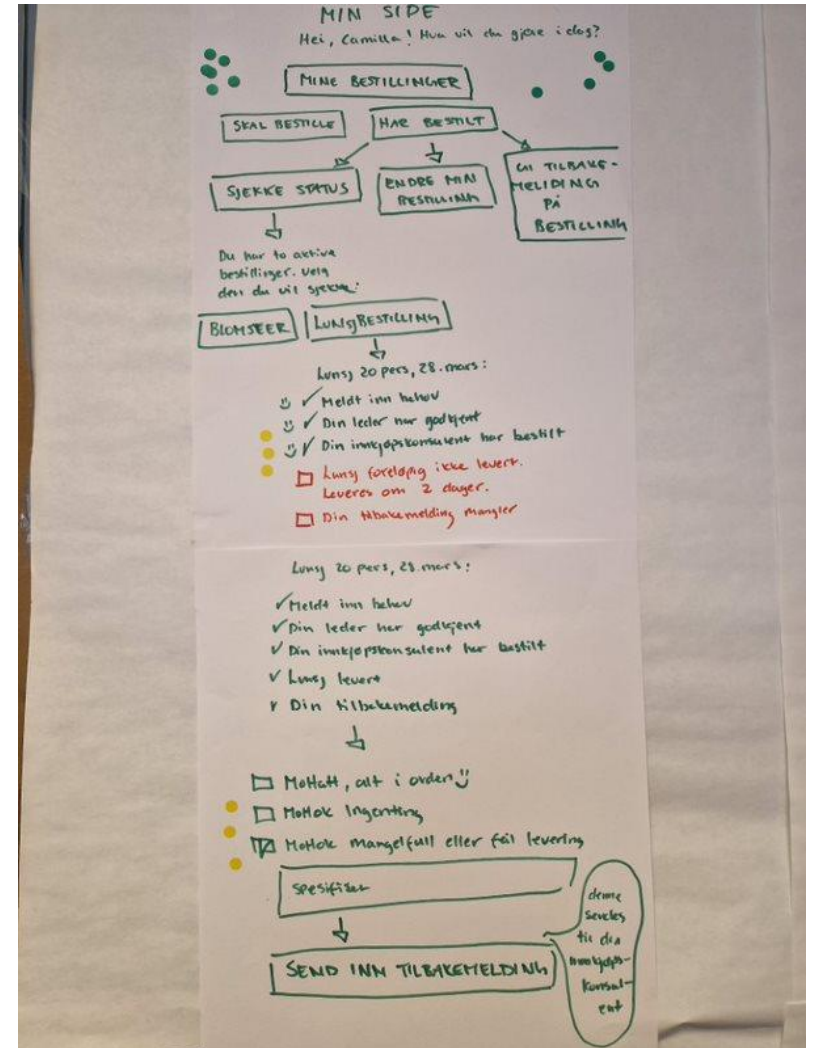 MIN SIDE
Hei, Camilla! Hva vil du gjøre i dag?
MINE BESTILLINGER
SKAL BESTILLE
HAR BESTILT
SJEKKE STATUS
ENDRE MIN
BESTILLING
GI TILBAKE-
MELIDING
PÅ
BESTILLING
Du har to aktive
bestillinger. Velg
den du vil sjekke:
BLOMSTER
LUNSJBESTILLING
Lunsj 20 pers, 28. mars:
Meldt inn behov
Din leder har godkjent
Din innkjøpskonsulent har bestilt
Lunsj foreløpig ikke levert.
Leveres om 2 dager.
Din tilbakemelding mangler
Lunsj 20 pers, 28. mars:
Meldt inn behov
Din leder har godkjent
Din innkjøpskonsulent har bestilt
Lunsj levert
Din tilbakemelding
Mottatt, alt i orden
Mottok Ingenting
Mottok mangelfull eller feil levering
Spesifiser
SEND INN TILBAKEMELDING
denne
sendes
til din
innkjøps-
konsul-
ent